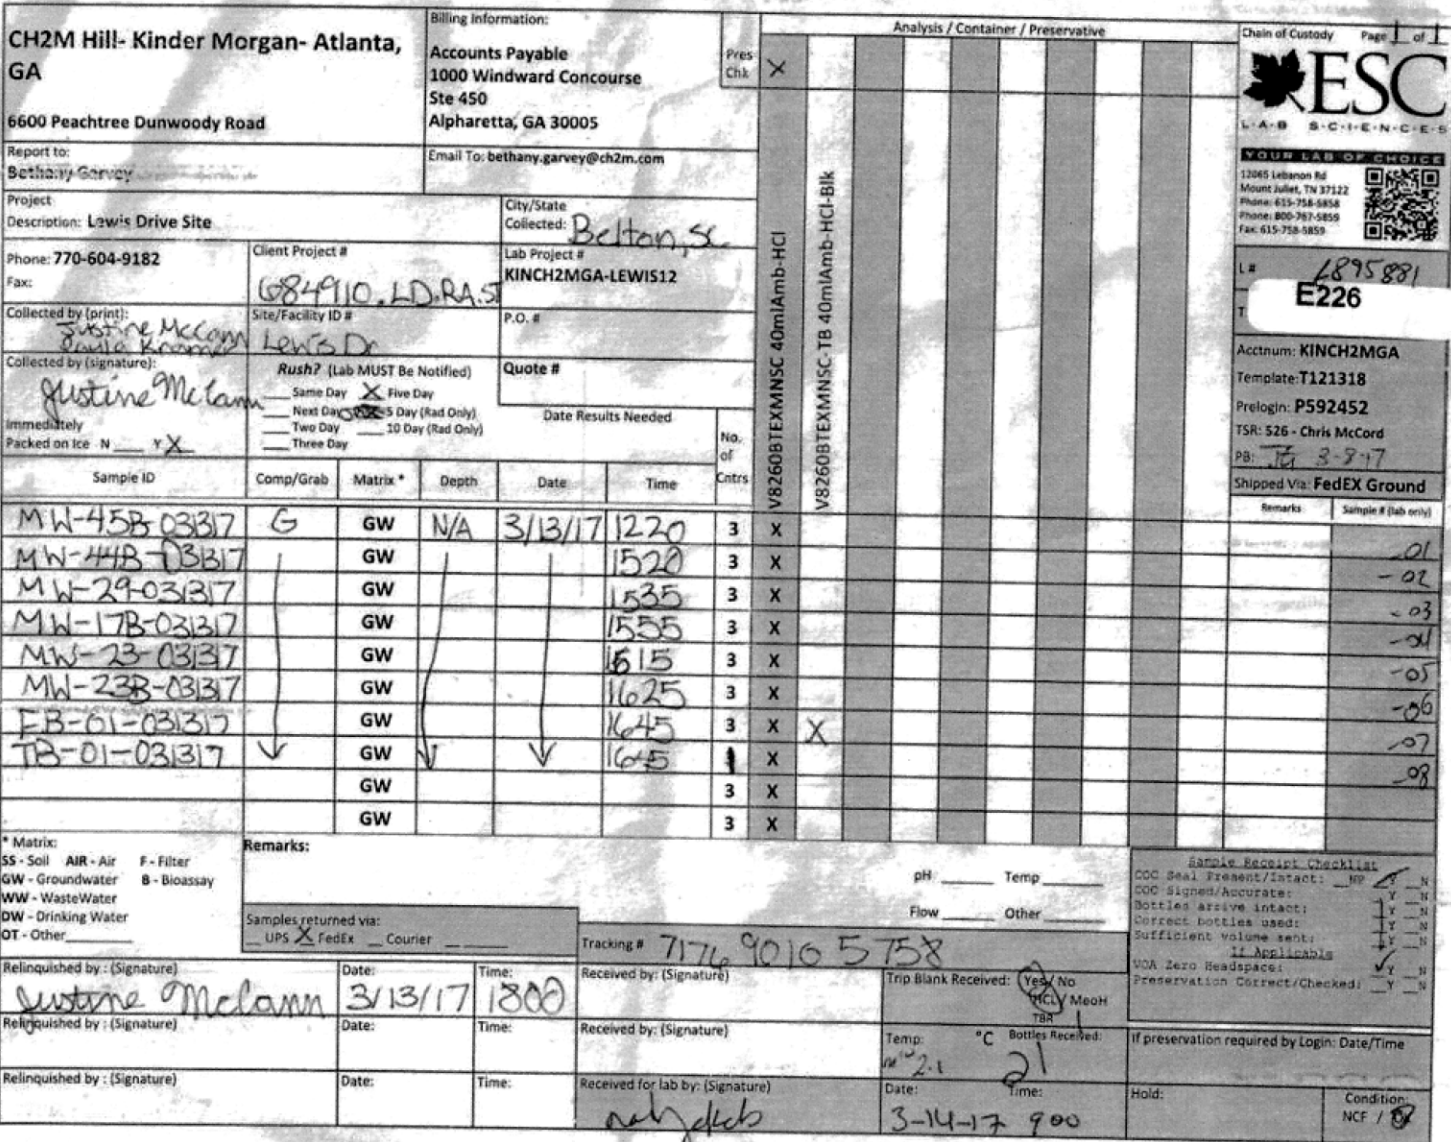 CH2M Hill- Kinder Morgan- Atlanta,
GA
6600 Peachtree Dunwoody Road
Billing Information:
Accounts Payable
1000 Windward Concourse
Ste 450
Alpharetta, GA 30005
Pres
Chk
X
Analysis / Container / Preservative
Chain of Custody Page 1 of 1
ESC
L·A·B S·C·I·E·N·C·E·S
YOUR LAB OF CHOICE
12065 Lebanon Rd
Mount Juliet, TN 37122
Phone: 615-758-5858
Phone: 800-767-5859
Fax: 615-758-5859
Report to:
Bethany Garvey
Email To: bethany.garvey@ch2m.com
Project
Description: Lewis Drive Site
City/State
Collected: Belton, SC
Phone: 770-604-9182
Fax:
Client Project #
684910.LD.RA.ST
Lab Project #
KINCH2MGA-LEWIS12
L # L895881
E226
T
Collected by (print):
Justine McCann
Site/Facility ID #
Lewis Dr
P.O. #
Collected by (signature):
Justine McCann
Rush? (Lab MUST Be Notified)
Same Day X Five Day
Next Day 5 Day (Rad Only)
Two Day 10 Day (Rad Only)
Three Day
Quote #
Date Results Needed
Immediately
Packed on Ice N Y X
No.
of
Cntrs
V8260BTEXMNSC 40mlAmb-HCl
V8260BTEXMNSC-TB 40mlAmb-HCl-Blk
Acctnum: KINCH2MGA
Template: T121318
Prelogin: P592452
TSR: 526 - Chris McCord
PB: 3-8-17
Shipped Via: FedEX Ground
Sample ID Comp/Grab Matrix * Depth Date Time Remarks Sample # (lab only)
MW-45B-031317 G GW N/A 3/13/17 1220 3 X -01
MW-44B-031317 GW 1520 3 X -02
MW-29-031317 GW 1535 3 X -03
MW-17B-031317 GW 1555 3 X -04
MW-23-031317 GW 1615 3 X -05
MW-23B-031317 GW 1625 3 X -06
EB-01-031317 GW 1645 3 X X -07
TB-01-031317 GW 1645 1 X -08
GW 3 X
GW 3 X
* Matrix:
SS - Soil AIR - Air F - Filter
GW - Groundwater B - Bioassay
WW - WasteWater
DW - Drinking Water
OT - Other
Remarks:
pH Temp
Flow Other
Samples returned via:
UPS X FedEx Courier
Tracking # 7176 9016 5758
Sample Receipt Checklist
COC Seal Present/Intact: NP Y N
COC Signed/Accurate: Y N
Bottles arrive intact: Y N
Correct bottles used: Y N
Sufficient volume sent: Y N
If Applicable
VOA Zero Headspace: Y N
Preservation Correct/Checked: Y N
Relinquished by : (Signature)
Justine McCann
Date:
3/13/17
Time:
1800
Received by: (Signature)
Trip Blank Received: Yes / No
HCL / MeoH
TBR
Relinquished by : (Signature)
Date:
Time:
Received by: (Signature)
Temp: °C Bottles Received:
2.1 21
If preservation required by Login: Date/Time
Relinquished by : (Signature)
Date:
Time:
Received for lab by: (Signature)
Date: Time:
3-14-17 900
Hold:
Condition:
NCF / OK